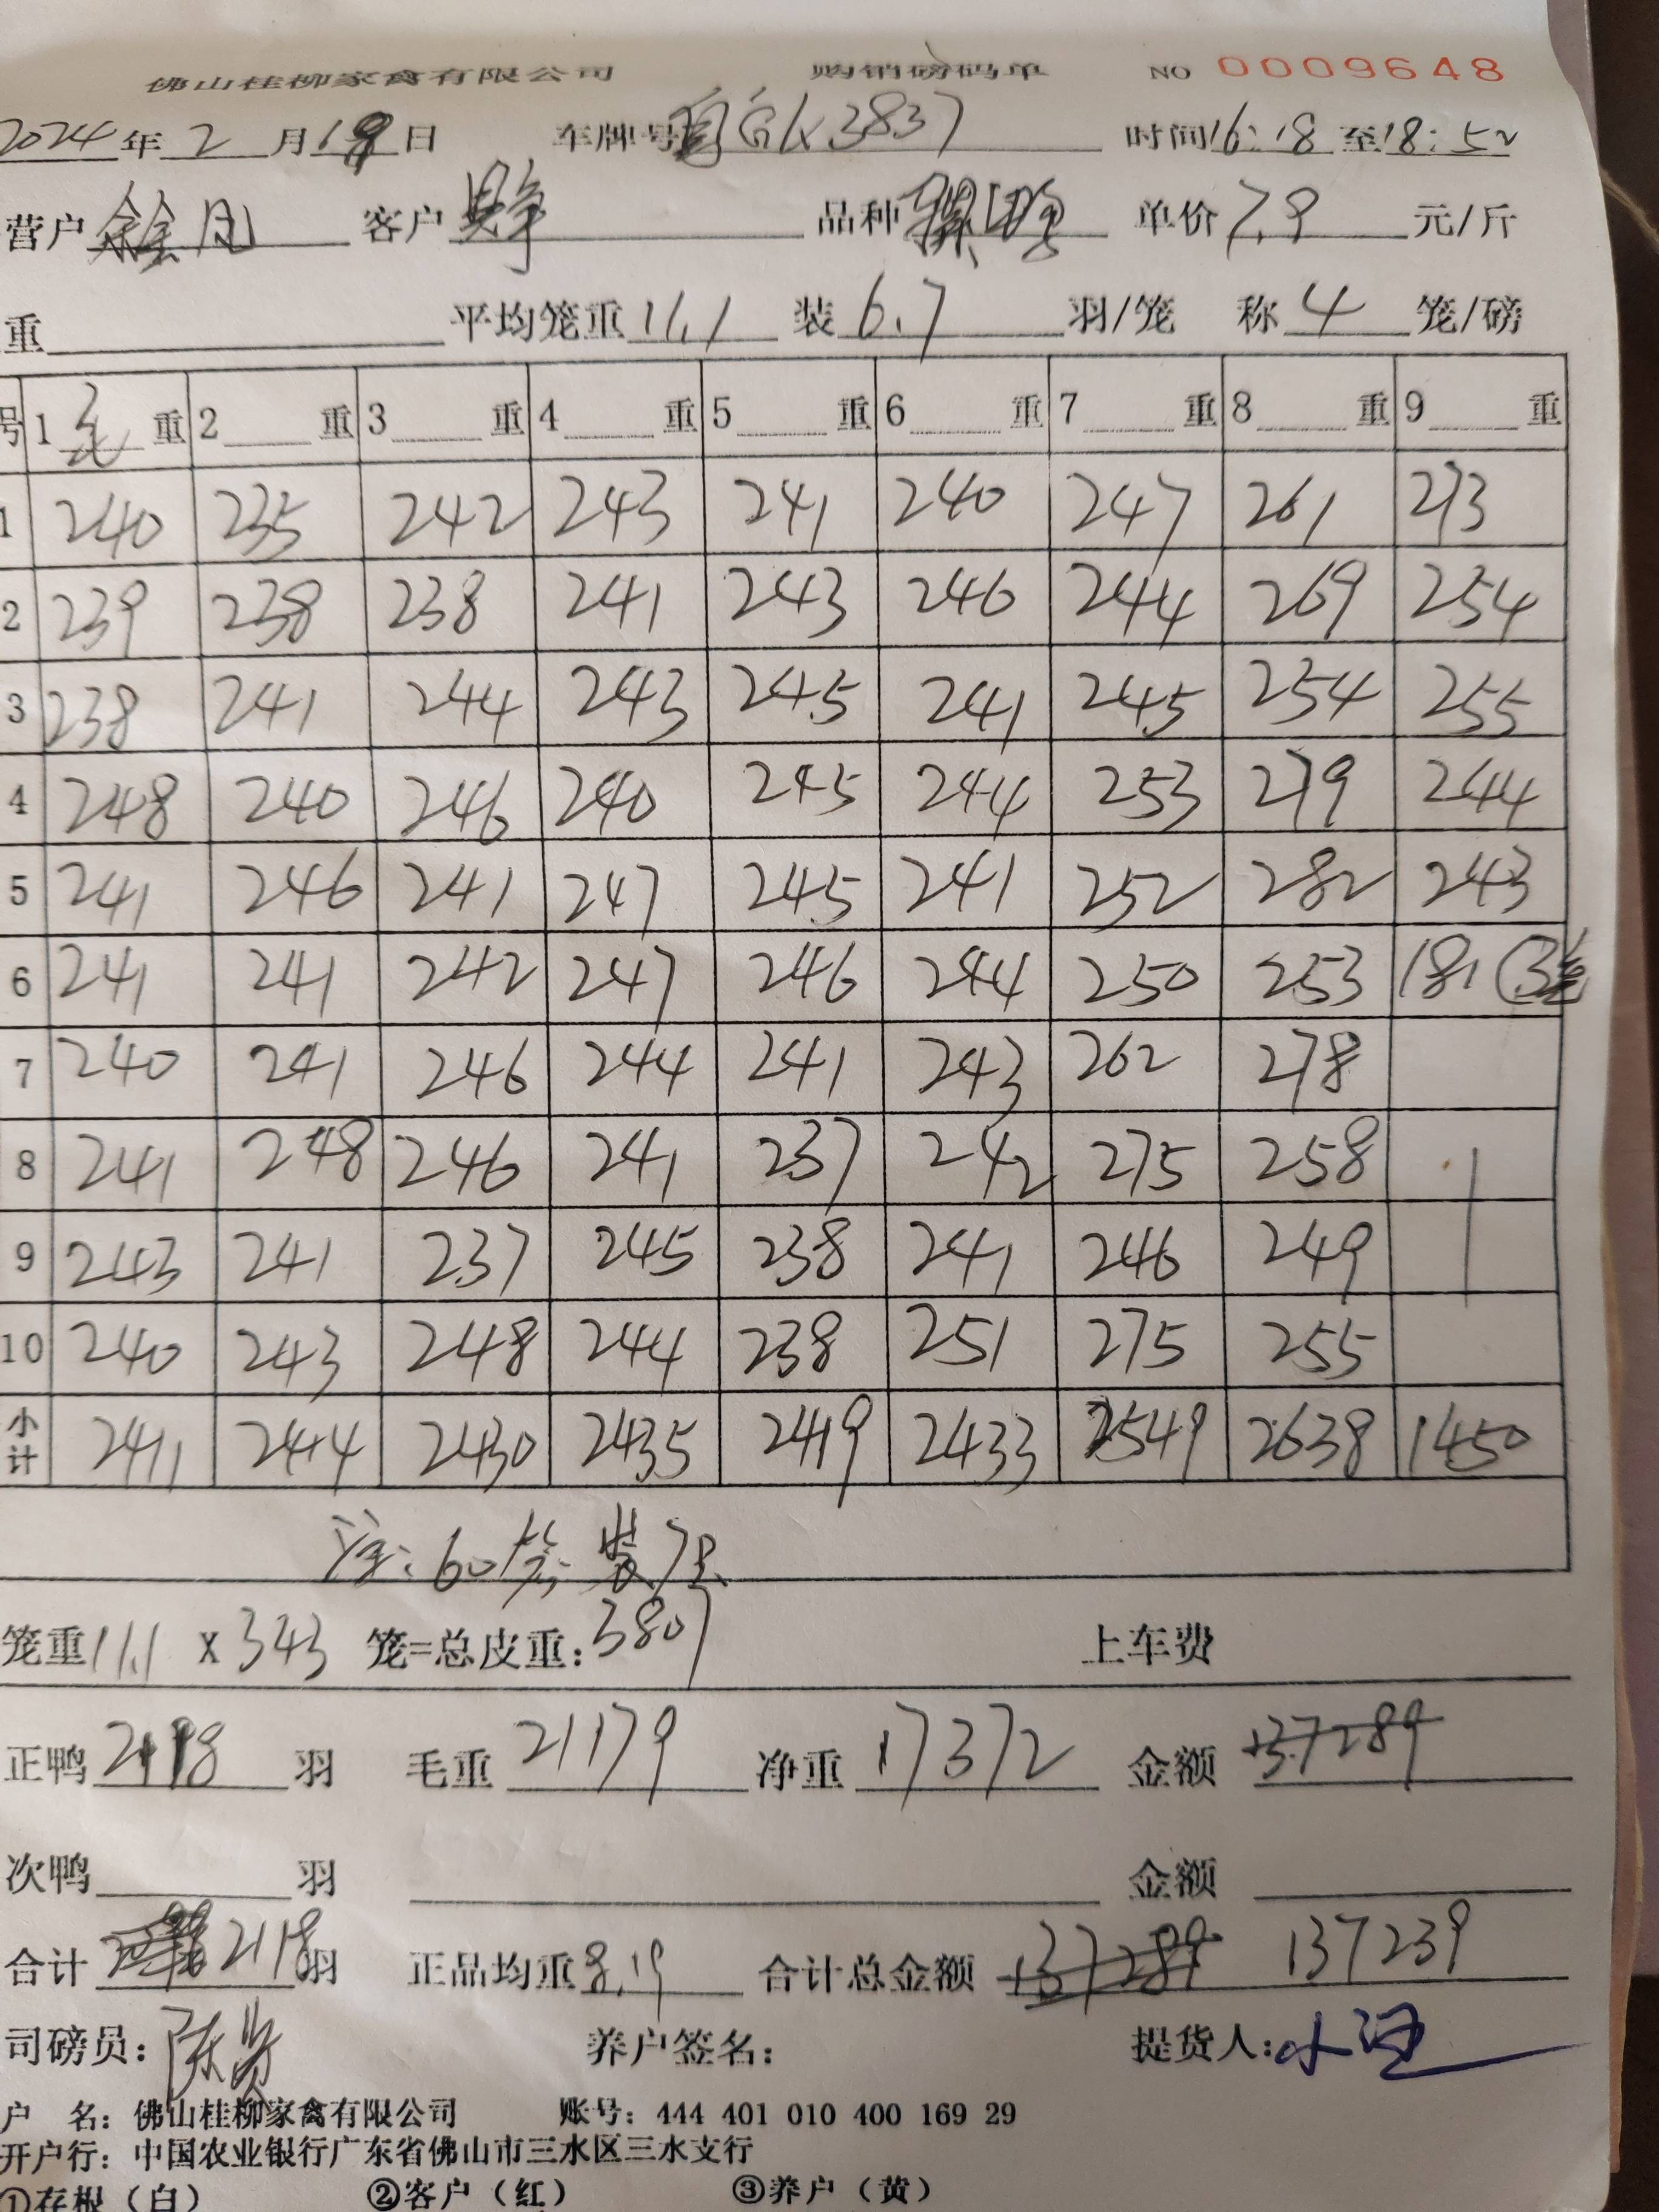 佛山桂柳家禽有限公司 购销磅码单 NO 0009648
2024年2月18日 车牌号 K3837 时间16:18至18:52
营户 客户 品种 单价7.9元/斤
重 平均笼重11.1 装6.7羽/笼 称4笼/磅
号 1毛重 2重 3重 4重 5重 6重 7重 8重 9重
1 240 235 242 243 241 240 247 261 273
2 239 238 238 241 243 246 244 269 254
3 238 241 244 243 245 241 245 254 255
4 248 240 246 240 245 244 253 279 244
5 241 246 241 247 245 241 252 282 243
6 241 241 242 247 246 244 250 253 181 (3笼
7 240 241 246 244 241 243 262 278
8 241 248 246 241 237 242 275 258
9 243 241 237 245 238 241 246 249
10 240 243 248 244 238 251 275 255
小计 2411 2414 2430 2435 2419 2433 2549 2638 1450
注:60笼装7只
笼重11.1 X 343 笼=总皮重:3807 上车费
正鸭2118羽 毛重21179 净重17372 金额137289
次鸭 羽 金额
合计2118羽 正品均重8.19 合计总金额137289 137239
司磅员: 养户签名: 提货人:
户 名: 佛山桂柳家禽有限公司 账号: 444 401 010 400 169 29
开户行: 中国农业银行广东省佛山市三水区三水支行
①存根(白) ②客户(红) ③养户(黄)